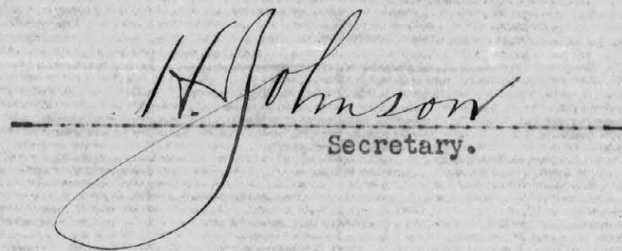 H. Johnson
Secretary.